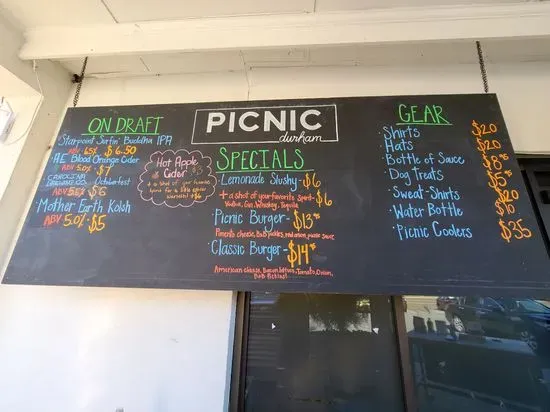 ON DRAFT
Starpoint Surfin' Buddha IPA
ABV 6.5% $6.50
AE Blood Orange Cider
ABV 5.0% $7
CAROLINA BREWING CO. Octoberfest
ABV 5.5% $6
Mother Earth Kolsh
ABV 5.0% $5
Hot Apple Cider $3
+ a shot of your
for a little extra
warmth! +$6
PICNIC
durham
SPECIALS
Lemonade Slushy - $6
+ a shot of your favorite spirit - $6
Vodka, Gin, Whiskey, Tequila
Picnic Burger - $13
Pimento cheese, B&B pickles, red onion, picnic sauce
Classic Burger - $14
American cheese, Bacon, lettuce, Tomato, Onion,
B&B Pickles
GEAR
Shirts $20
Hats $20
Bottle of Sauce
Dog Treats
Sweat-Shirts
Water Bottle
Picnic Coolers $35